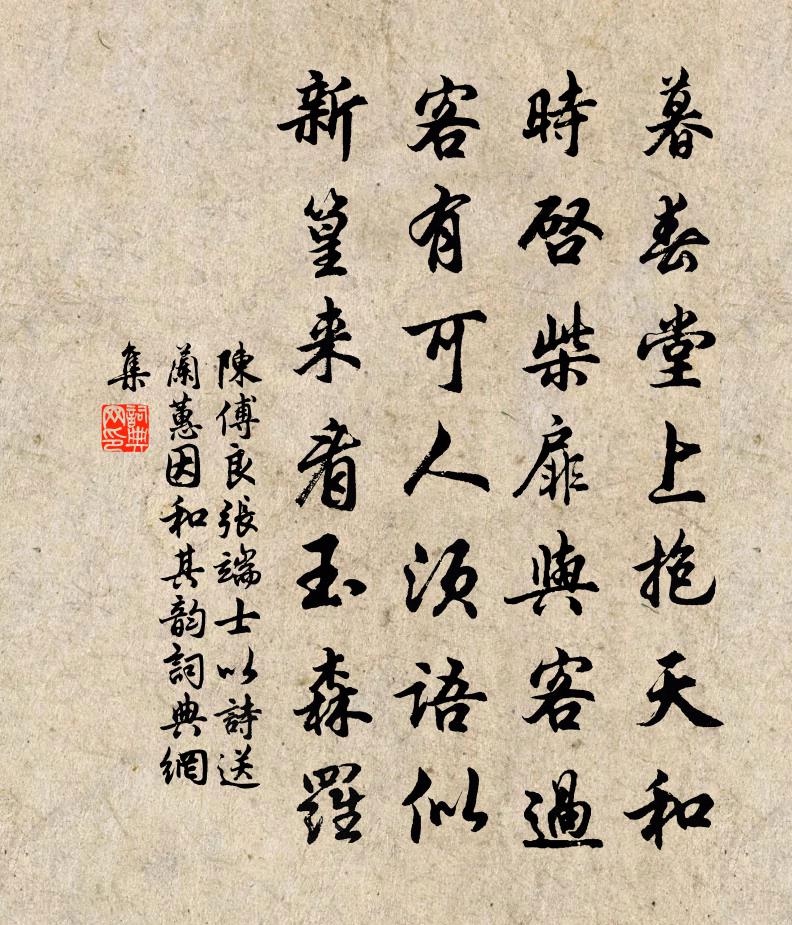 暮春堂上抱天和
時啓柴扉與客過
客有可人須語似
新篁来看玉森羅
陳傅良張端士以詩送
蘭蕙因和其韵詞典網
集
詞典
网印